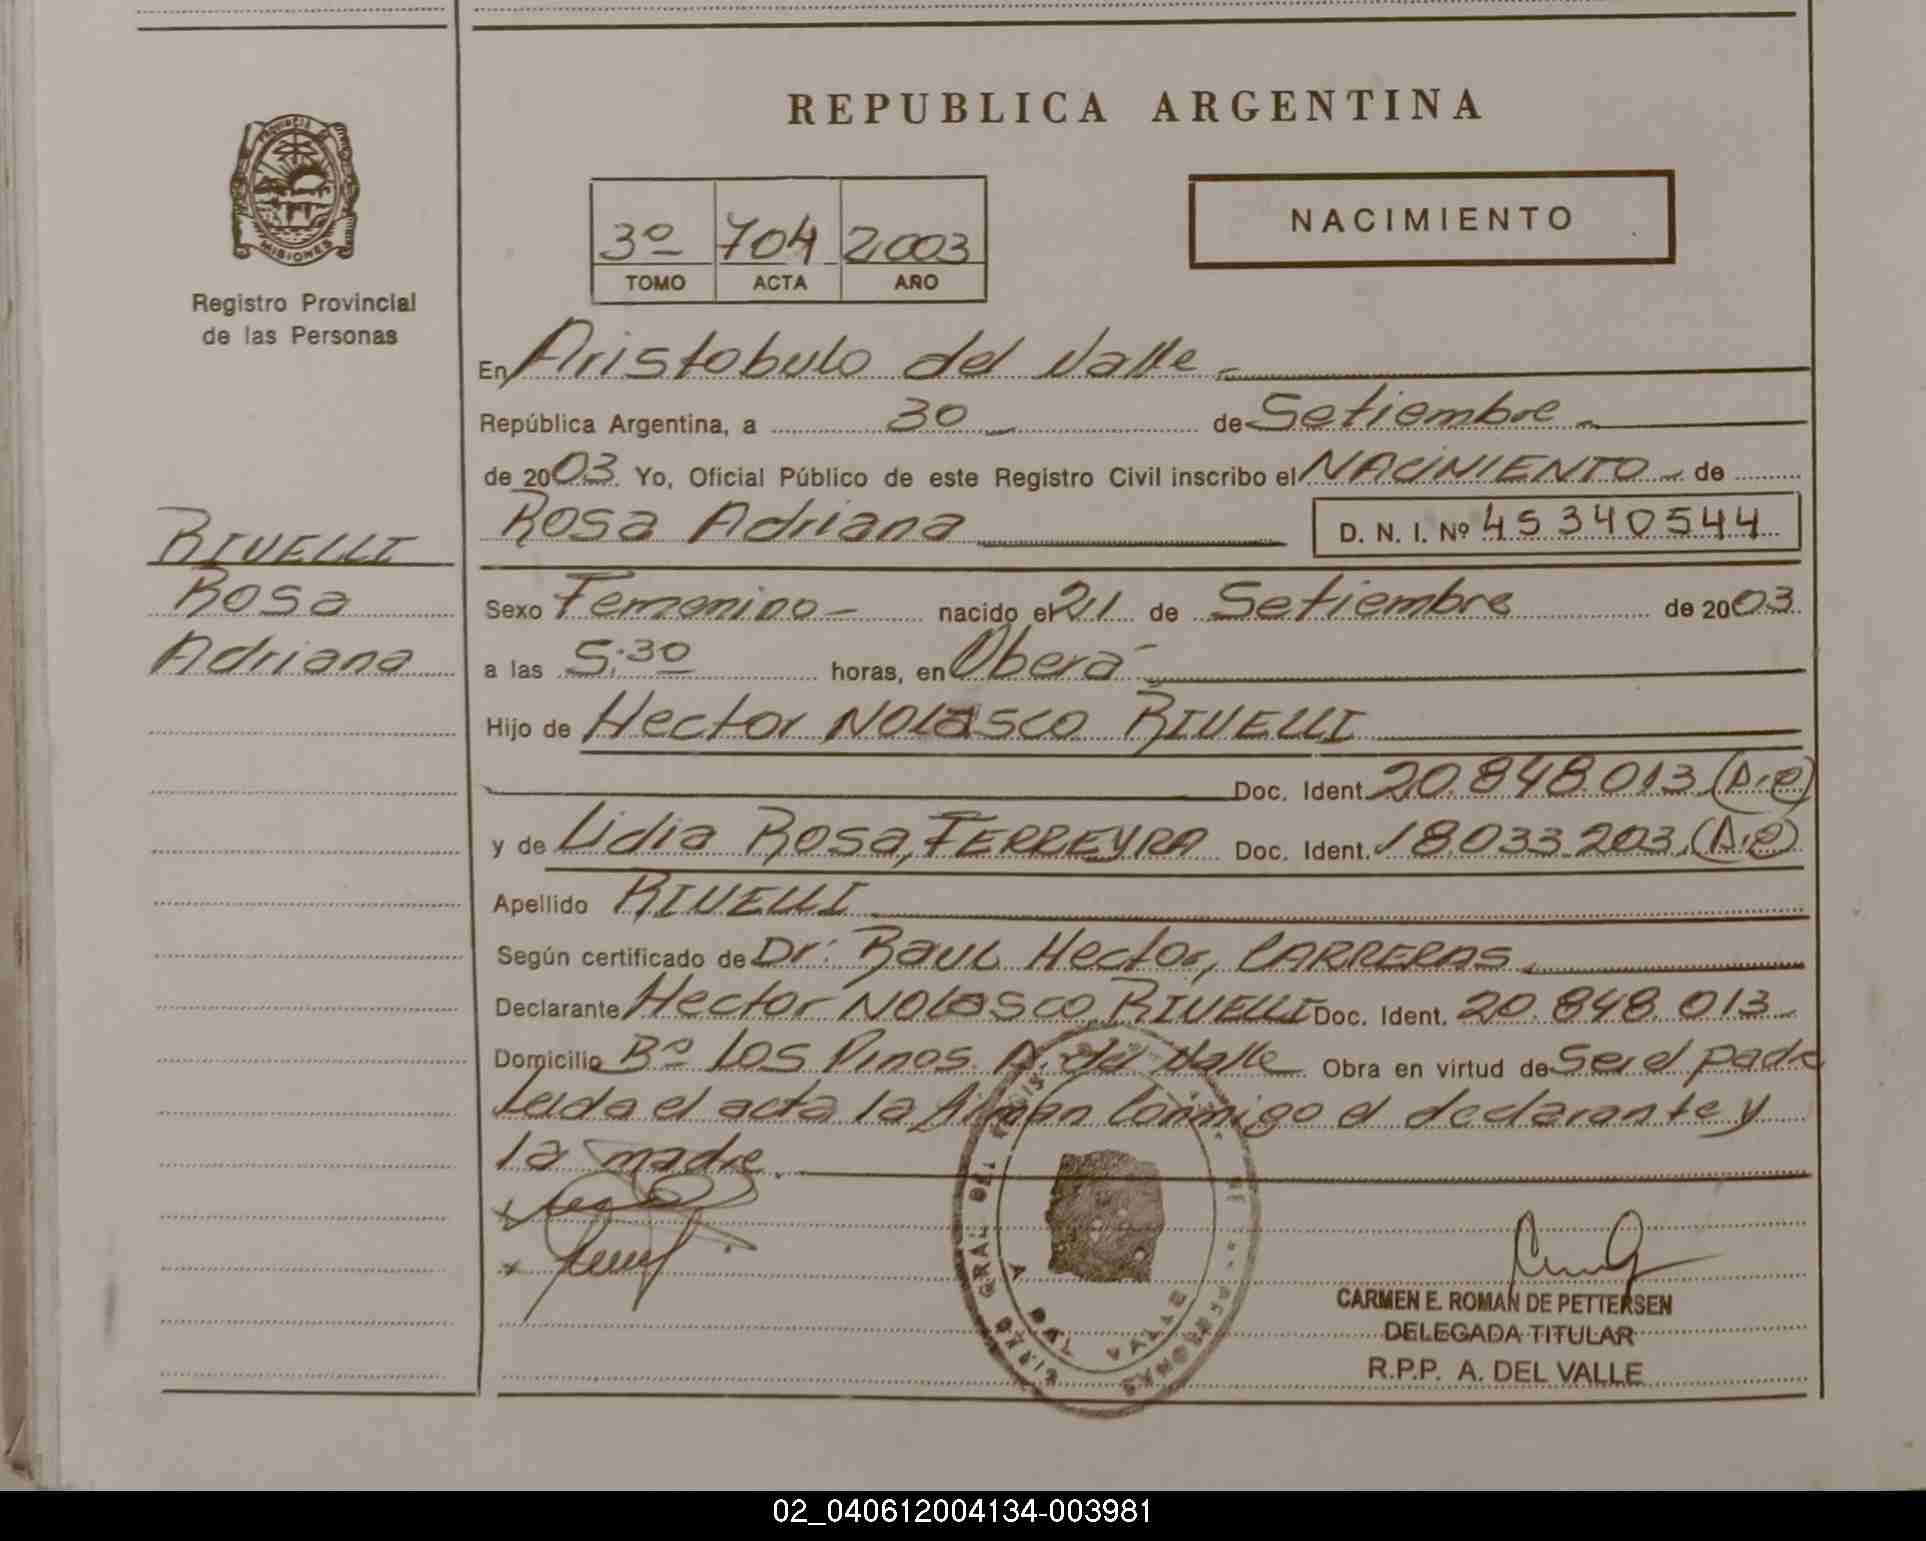 REPUBLICA ARGENTINA
NACIMIENTO
3º 704 2003
TOMO ACTA AÑO
MISIONES
Registro Provincial
de las Personas
RIVELLI
Rosa
Adriana
En Aristobulo del Valle.
República Argentina, a 30 de Setiembre
de 2003. Yo, Oficial Público de este Registro Civil inscribo el NACIMIENTO de
Rosa Adriana D. N. I. Nº 45340544
Sexo Femenino nacido el 21 de Setiembre de 2003
a las 5:30 horas, en Oberá
Hijo de Hector NOLASCO RIVELLI
Doc. Ident. 20.848.013
y de Lidia Rosa, FERREYRA Doc. Ident. 18.033.203.
Apellido RIVELLI
Según certificado de Dr: RAUL Hector, CARRERAS
Declarante Hector NOLASCO RIVELLI Doc. Ident. 20.848.013
Domicilio Bº Los Pinos. A. del Valle Obra en virtud de Ser el padre
Leida el acta la firman conmigo el declarante y
la madre.
CARMEN E. ROMAN DE PETTERSEN
DELEGADA TITULAR
R.P.P. A. DEL VALLE
02_040612004134-003981